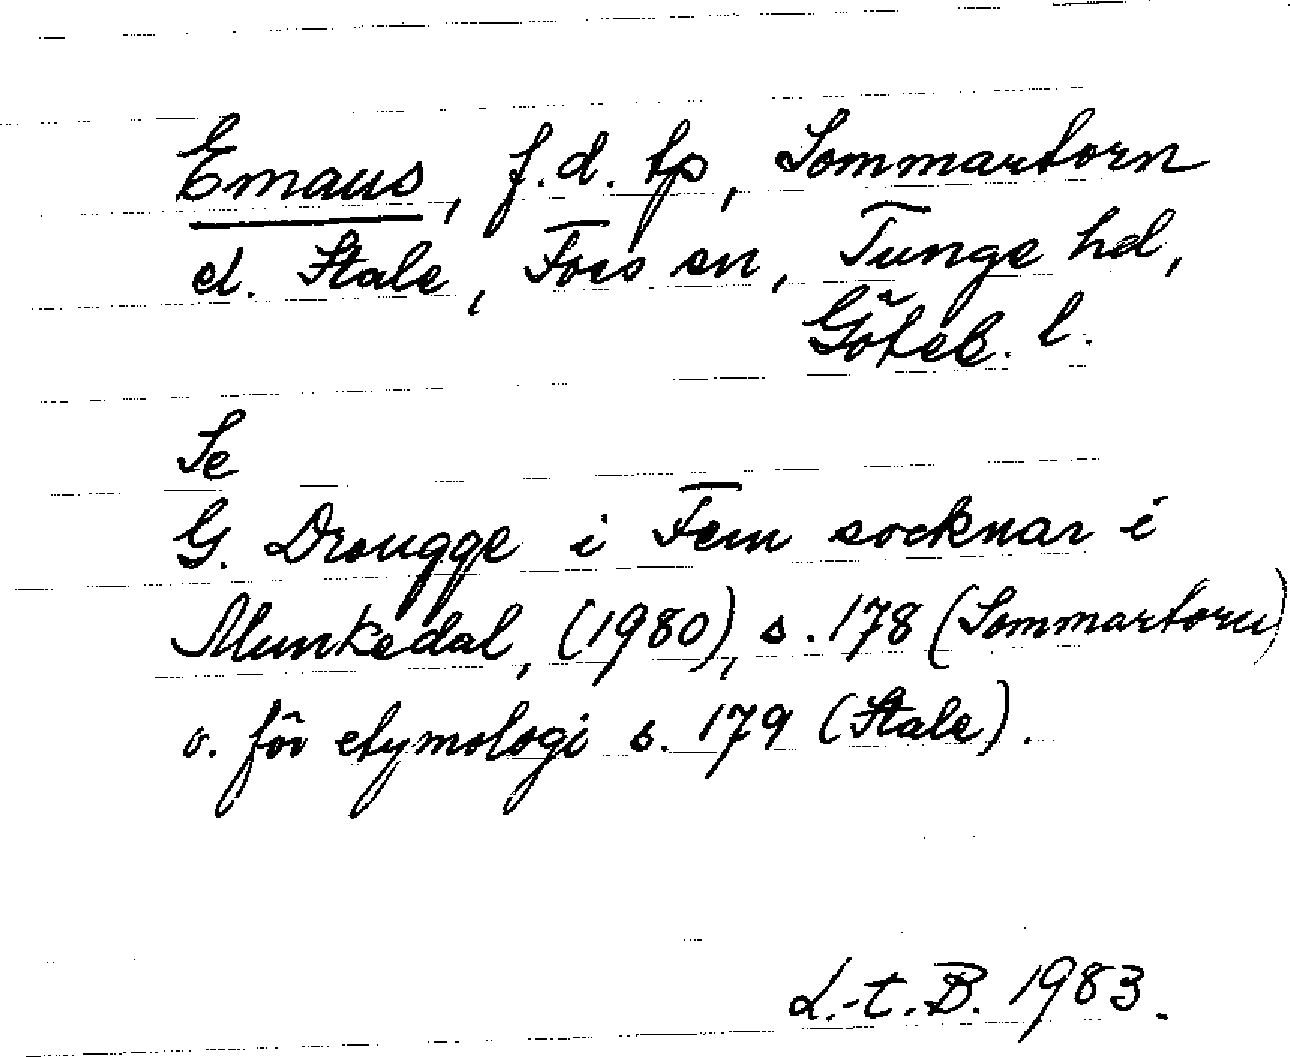 Emaus, f.d. tp, Sommartorn
el. Stale, Foss sn, Tunge hd,
Göteb. l.
Se
G. Drougge i Fem socknar i
Munkedal, (1980), s. 178 (Sommartorn)
o. för etymologi s. 179 (Stale).
L.-t. B. 1983.